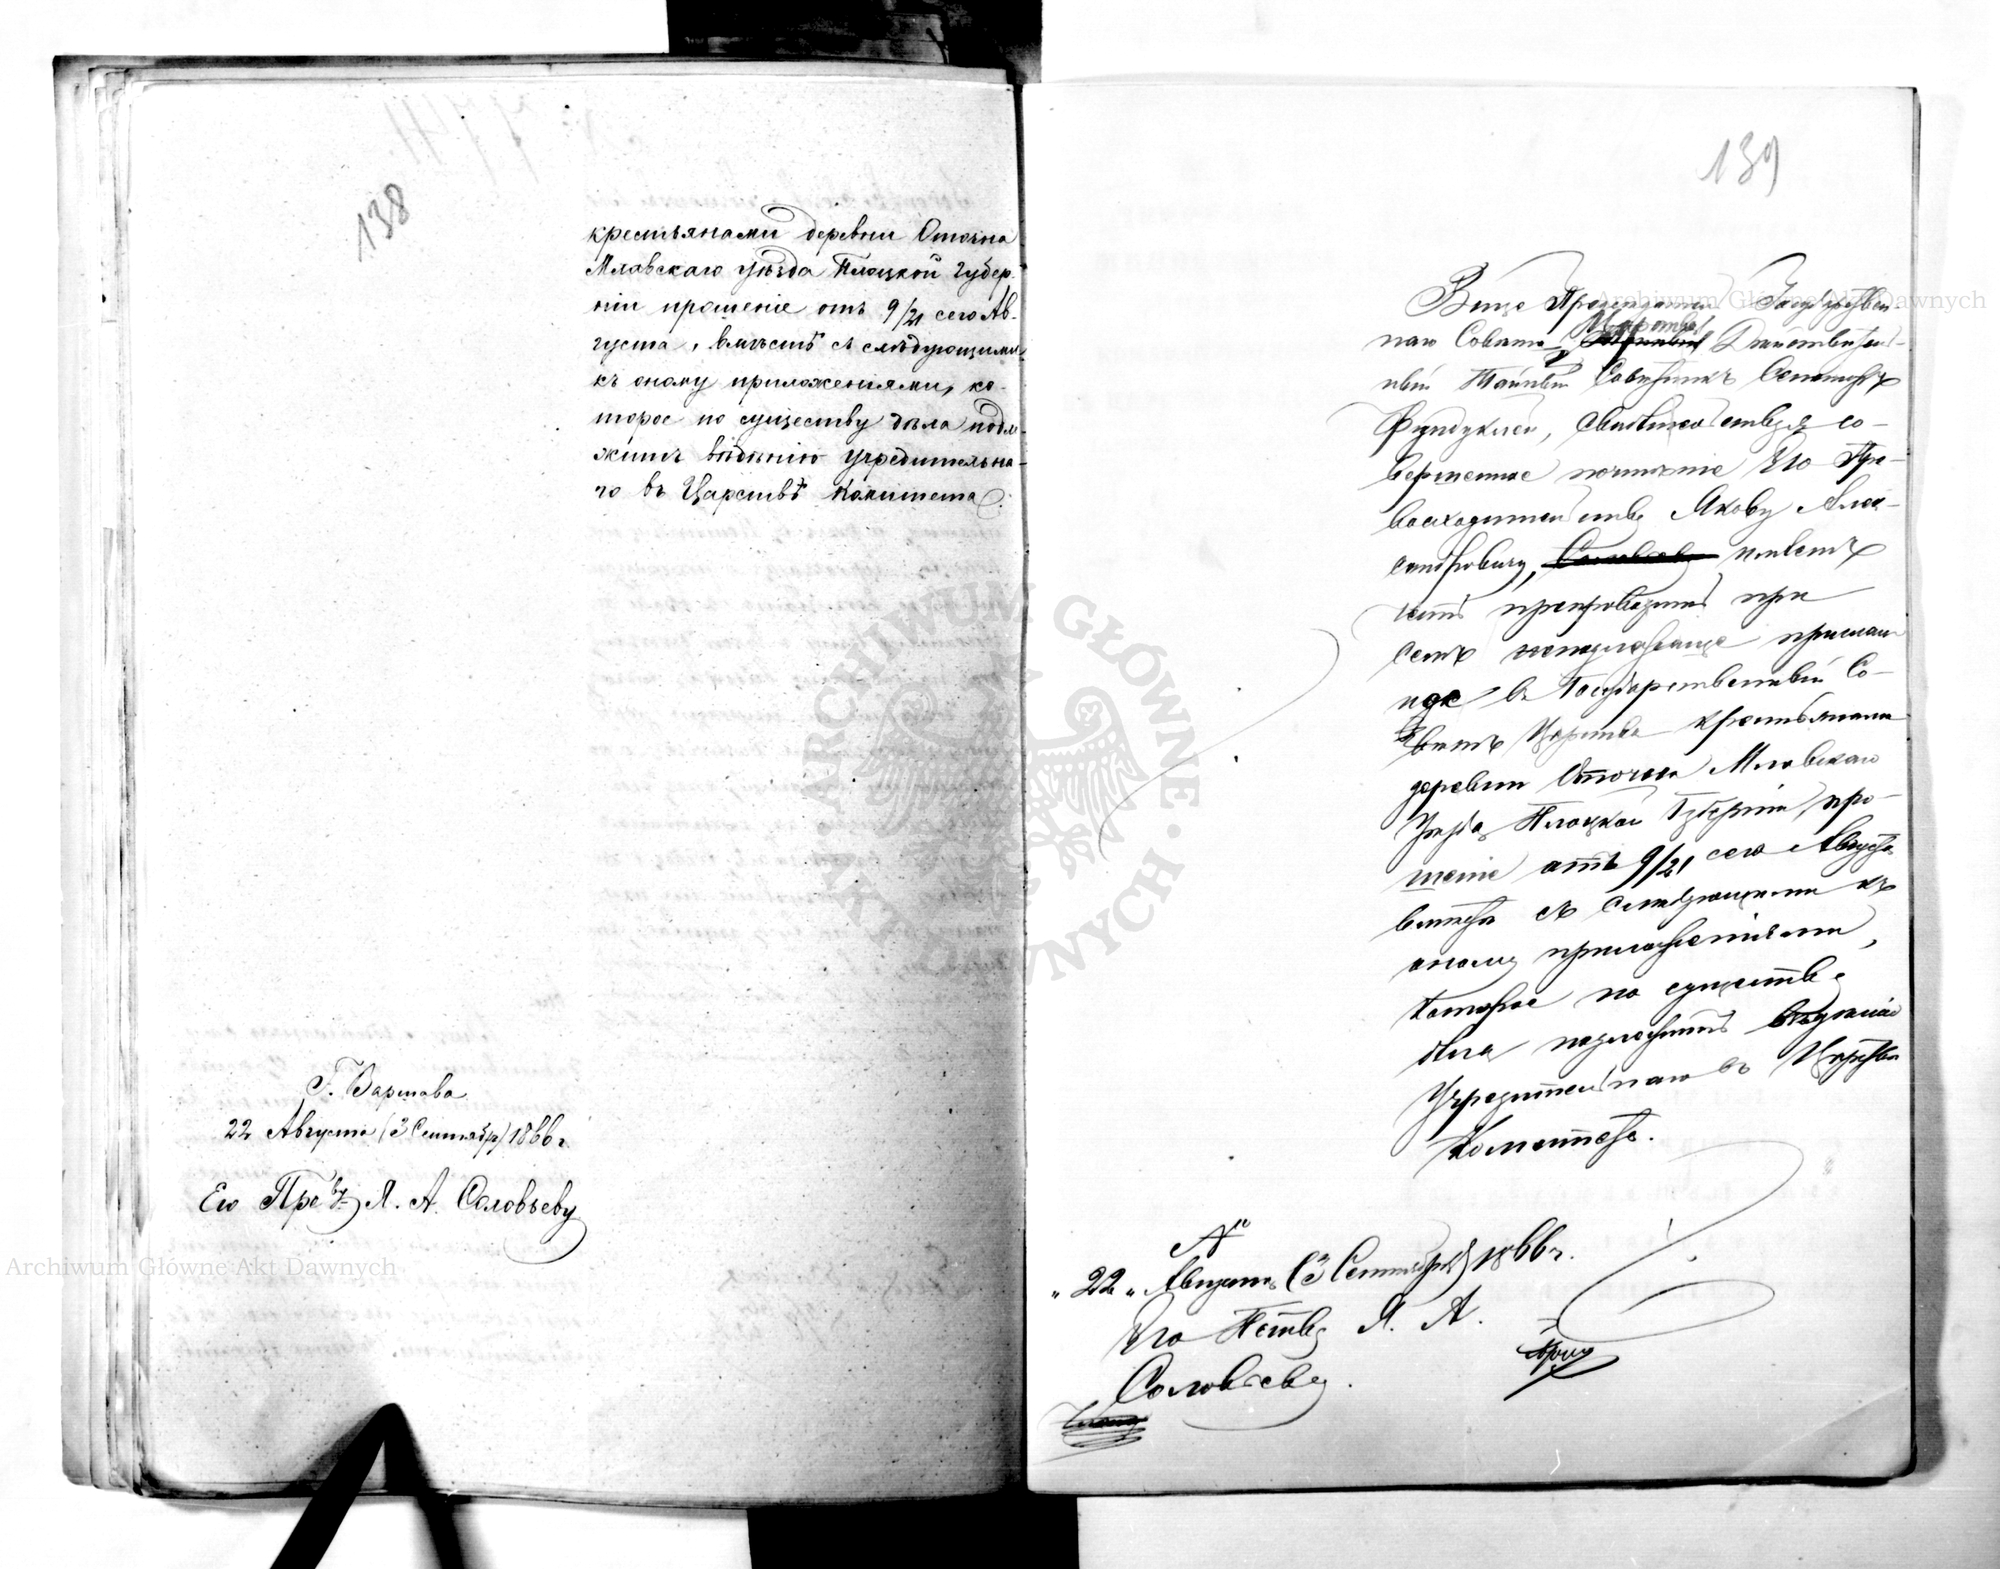 138
крестьянами деревни Оточна
Млавскаго уѣзда Плоцкой Губер-
ніи прошеніе отъ 9/21 сего Ав-
густа, вмѣстѣ съ слѣдующими
къ оному приложеніями, ко-
торое по существу дѣла подле-
житъ вѣдѣнію Учредительна-
го въ Царствѣ Комитета.
Г. Варшава
22 Августа (3 Сентября) 1866 г.
Его Прев. Я. А. Соловьеву
139
Вице Президентъ Государствен-
наго Совѣта Царства, Дѣйствитель-
ный Тайный Совѣтникъ
Фундуклей, свидѣтельствуя со-
вершенное почтеніе Его Пре-
восходительству Якову Алек-
сандровичу, Соловьеву имѣетъ
честь препроводить при
семъ принадлежащее
въ Государственный Со-
вѣтъ Царства крестьянами
деревни Оточна Млавскаго
Уѣзда Плоцкой Губерніи, про-
шеніе отъ 9/21 сего Августа
вмѣстѣ съ слѣдующими къ
оному приложеніями,
которое по существу
дѣла подлежитъ вѣдѣнію
Учредительнаго въ Царствѣ
Комитета.
"22" Августа (3 Сентября) 1866 г.
Его П-ству Я. А.
Соловьеву.
ARCHIWUM GŁÓWNE AKT DAWNYCH
Archiwum Główne Akt Dawnych
Archiwum Główne Akt Dawnych